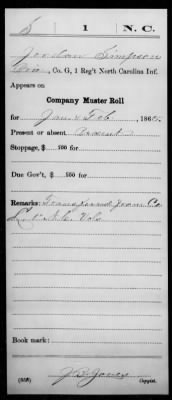 S 1 N.C.
Jordan Simpson
Pvt., Co. G, 1 Reg't North Carolina Inf.
Appears on
Company Muster Roll
for Jan & Feb, 1865.
Present or absent Present
Stoppage, $ 100 for
Due Gov't, $ 100 for
Remarks: Transferred from Co.
1st N.C. Vols
Book mark:
J B Jones
(858) Copyist.